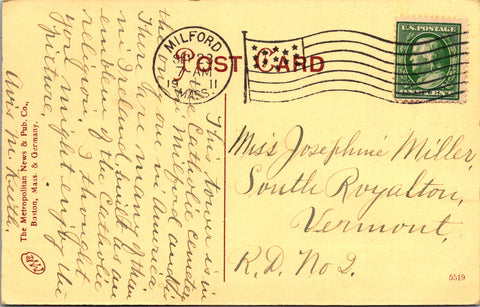 POST CARD
MILFORD
7-AM
19 11
MASS.
U.S. POSTAGE
This tower is in
the Catholic cemetery
in Milford and is
the only one in America
There are many of them
in Ireland built as an
emblem of the Catholic
religion. I thought
you might enjoy the
picture.
Avis M. Keith.
The Metropolitan News & Pub. Co.,
Boston, Mass. & Germany.
Miss Josephine Miller,
South Royalton,
Vermont,
R.D. No 2.
5519